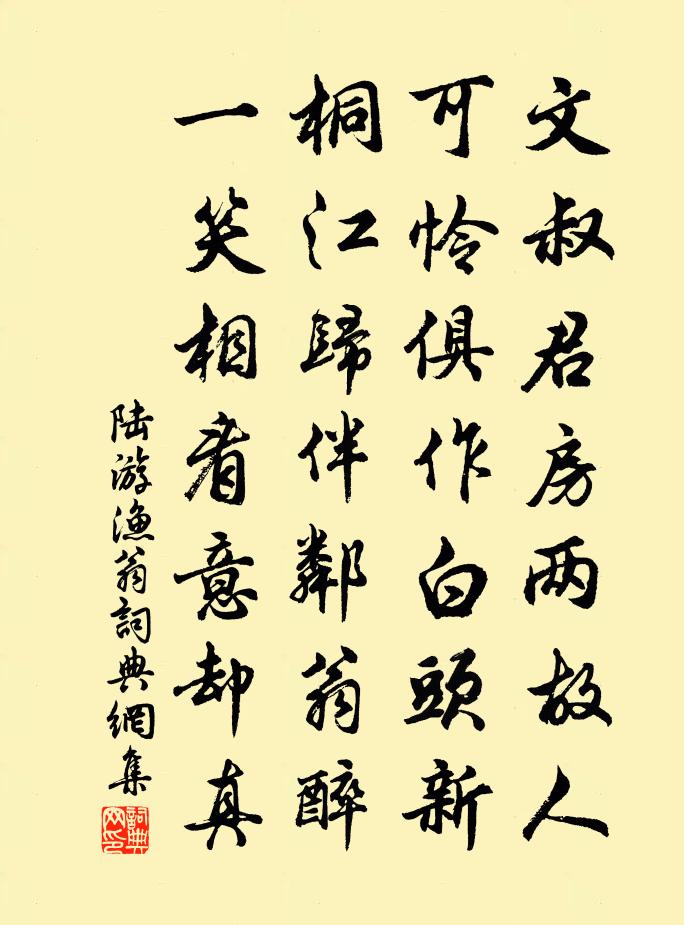 文叔君房两故人
可怜俱作白頭新
桐江歸伴鄰翁醉
一笑相看意却真
陆游漁翁詞典網集
詞典网印